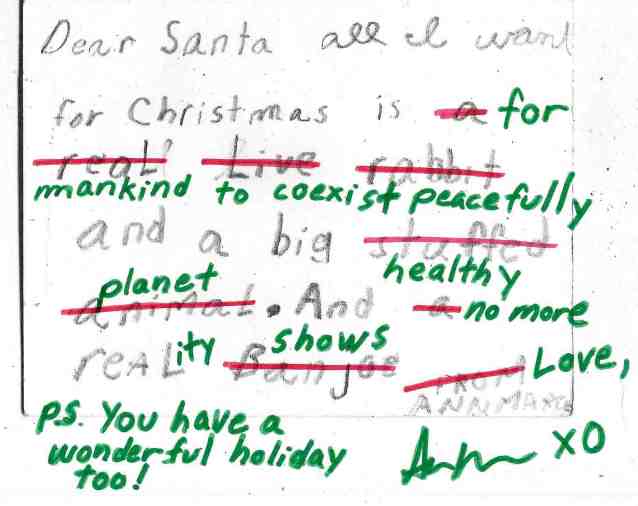 Dear Santa all I want
for Christmas is a for
real Live rabbit
mankind to coexist peacefully
and a big stuffed
planet healthy
animal. And a no more
reALity shows
Banjoe Love,
FROM
ANNMARIE
P.S. You have a
wonderful holiday
too!
XO